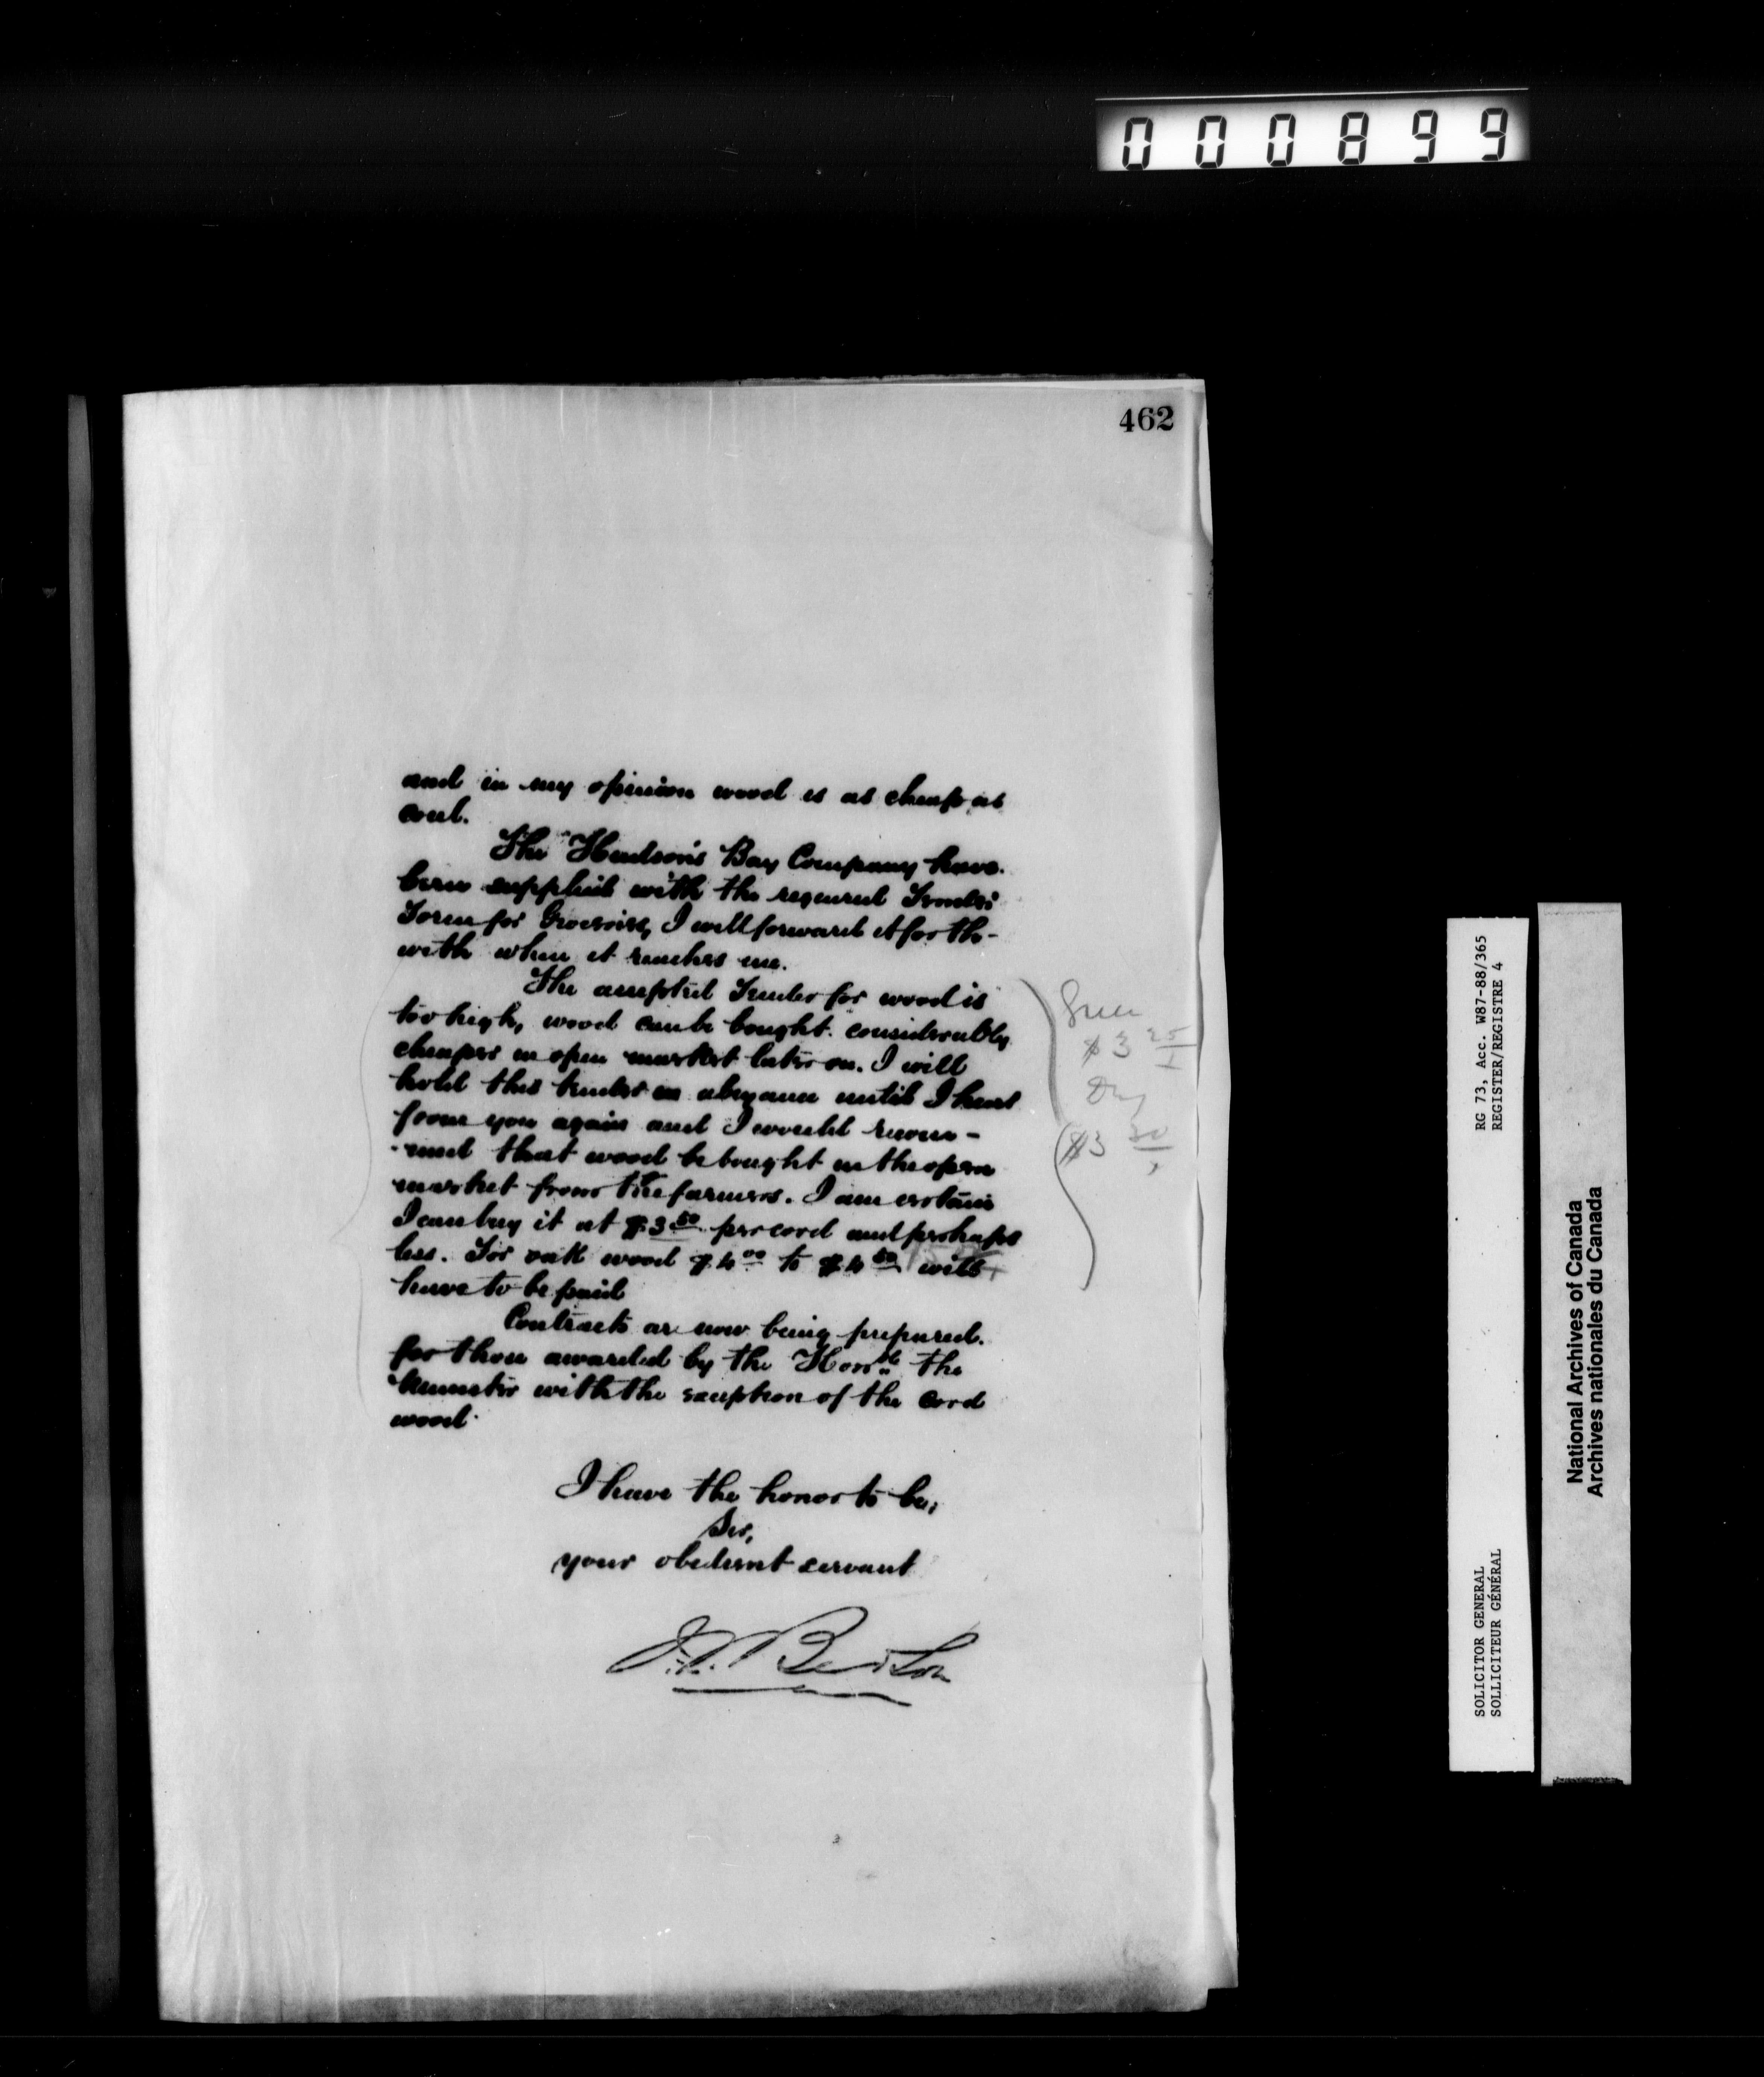 000899
462
and in my opinion wood is as cheap as
coal.
The Hudson's Bay Company have
been supplied with the required Tender
Form for Groceries, I will forward it forth-
with when it reaches me.
The accepted Tender for wood is
too high, wood can be bought considerably
cheaper in open market later on. I will
hold this tender in abeyance until I hear
from you again and I would recom-
-mend that wood be bought in the open
market from the farmers. I am certain
I can buy it at $3.50 per cord and perhaps
less. For oak wood $4.00 to $4.50 will
have to be paid
Contracts are now being prepared.
for those awarded by the Honble the
Minister with the exception of the cord
wood.
I have the honor to be,
Sir,
your obedient servant
$3 25
Dry
$3
RG 73, Acc. W87-88/365
REGISTER/REGISTRE 4
SOLICITOR GENERAL
SOLLICITEUR GÉNÉRAL
National Archives of Canada
Archives nationales du Canada